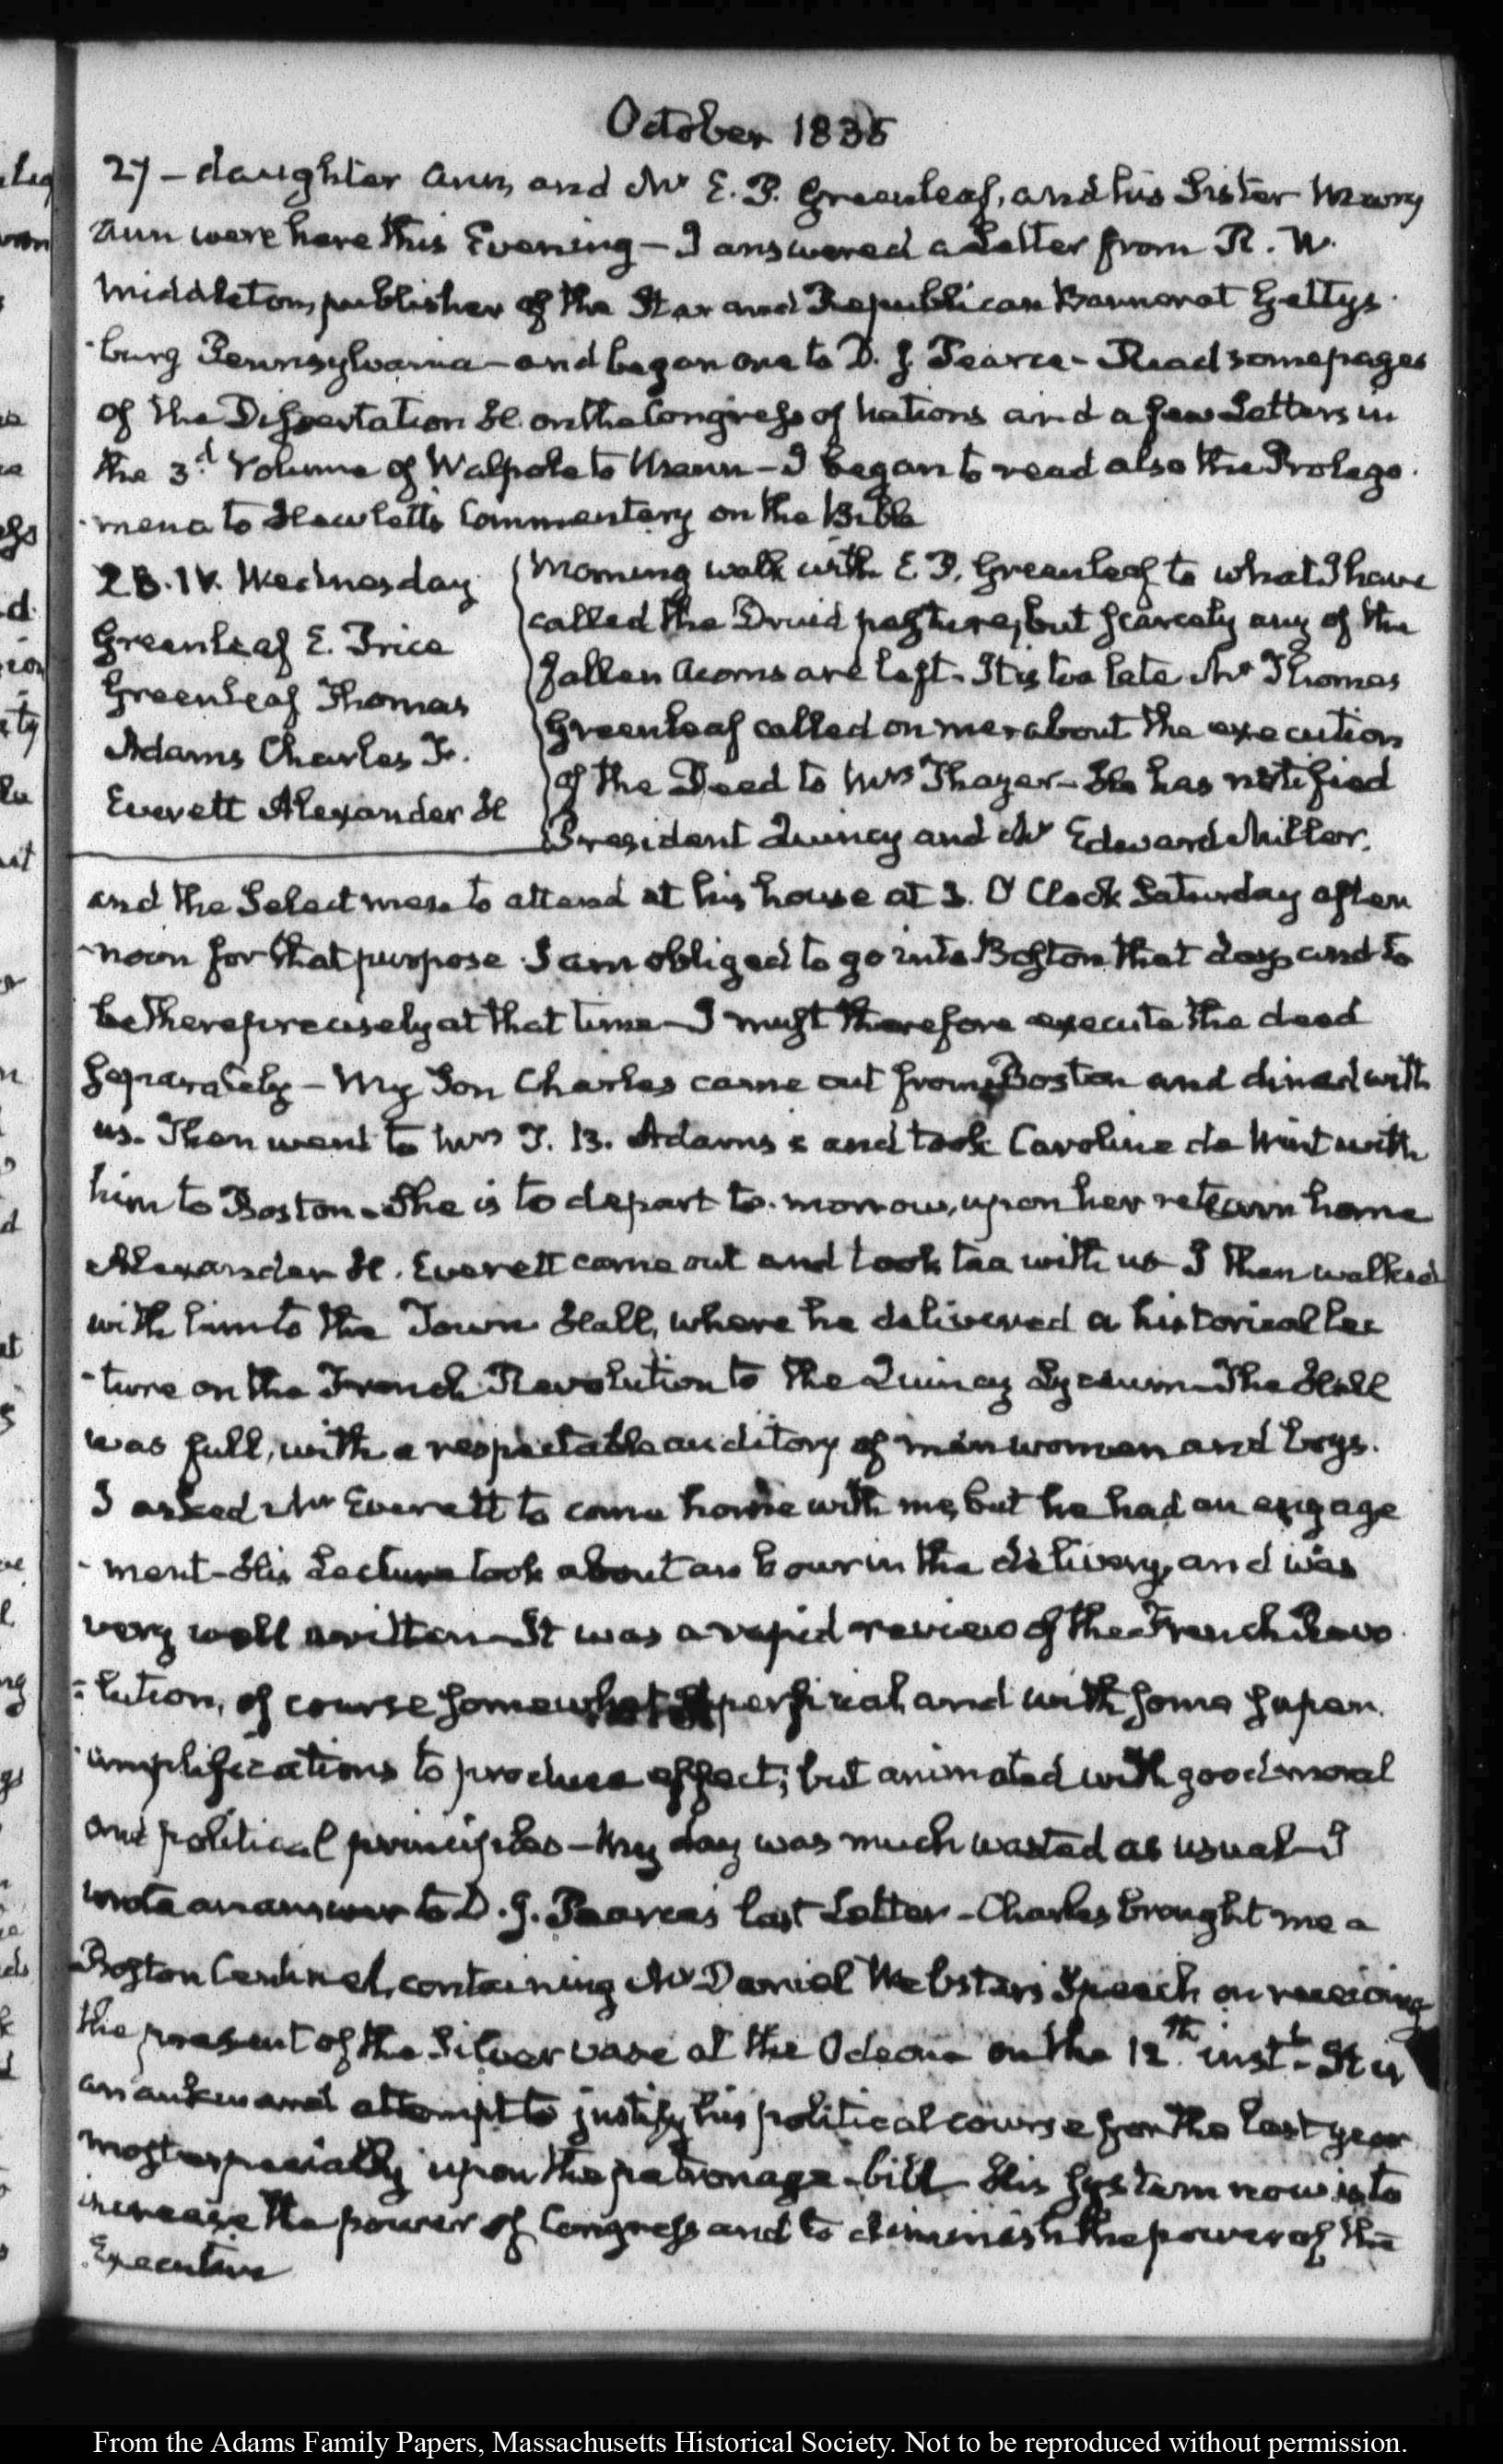 October 1835
27 – daughter Ann, and Mr E. P. Greenleaf, and his Sister Mary
Ann were here this Evening – I answered a Letter from R. W.
Middleton, publisher of the Star and Republican Banner at Gettys-
-burg Pennsylvania – and began one to D. J. Pearce – Read some pages
of the Dissertation &c. on the Congress of Nations and a few Letters in
the 3d. Volume of Walpole to Mann – I began to read also the Prolego-
-mena to Hewlett's Commentary on the Bible
28. IV. Wednesday
Greenleaf E. Price
Greenleaf Thomas
Adams Charles F.
Everett Alexander H
Morning walk with E. P. Greenleaf to what I have
called the Druid pasture, but scarcely any of the
fallen acorns are left. It is too late Mr Thomas
Greenleaf called on me about the execution
of the Deed to Mrs Thayer – He has notified
President Quincy and Mr Edward Miller.
and the Select men to attend at his house at 3. O'Clock Saturday after
-noon for that purpose. I am obliged to go into Boston that day, and to
be there precisely at that time – I must therefore execute the deed
separately – My Son Charles came out from Boston and dined with
us. Then went to Mrs T. B. Adams's and took Caroline de Wint with
him to Boston – She is to depart to-morrow, upon her return home
Alexander H. Everett came out and took tea with us I then walked
with him to the Town Hall, where he delivered a historical lec
-ture on the French Revolution to the Quincy Lyceum – The Hall
was full, with a respectable auditory of men women and boys.
I asked Mr Everett to come home with me, but he had an engage
-ment – His Lecture took about an hour in the delivery, and was
very well written – It was a rapid review of the French Revo-
-lution, of course somewhat superficial, and with some super.
amplifications to produce effect; but animated with good moral
and political principles – My day was much wasted as usual – I
wrote an answer to D. J. Pearce's last Letter – Charles brought me a
Boston Centinel, containing Mr Daniel Webster's Speech on receiving
the present of the Silver vase at the Odeon on the 12th. inst – It is
an aukward attempt to justify his political course for the last year
most especially upon the patronage-bill – His system now is to
increase the power of Congress and to diminish the power of the
Executive
From the Adams Family Papers, Massachusetts Historical Society. Not to be reproduced without permission.